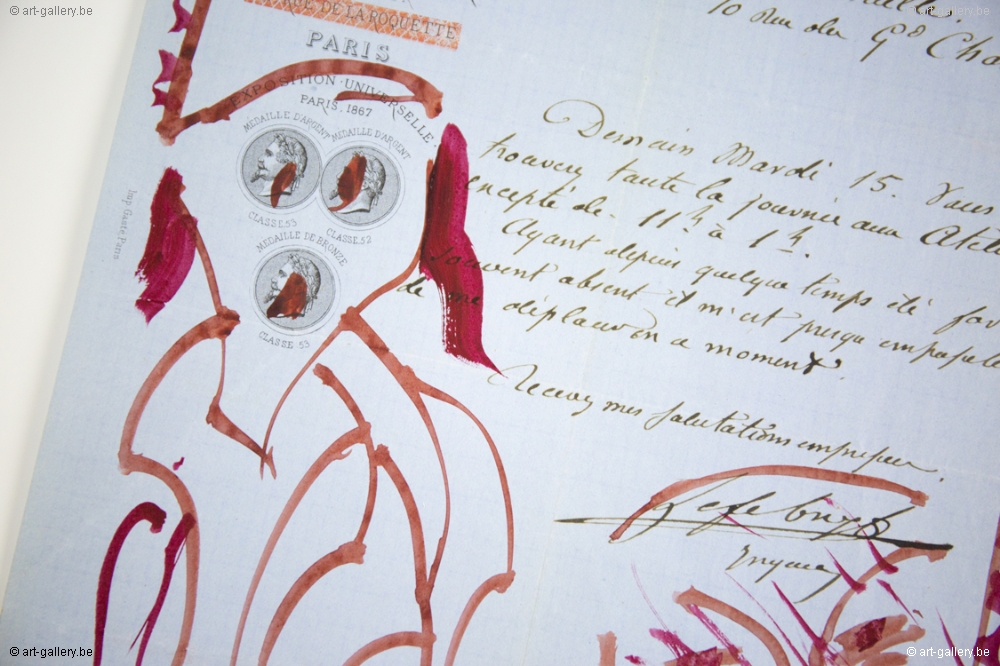 © art-gallery.be
© art-gallery.be
RUE DE LA ROQUETTE
PARIS
10 Rue du Gd Cha
EXPOSITION UNIVERSELLE
PARIS. 1867
MEDAILLE D'ARGENT
MEDAILLE D'ARGENT
CLASSE 53
CLASSE 52
MEDAILLE DE BRONZE
CLASSE 53
Imp Gasté Paris
Demain Mardi 15. Vous
trouverez toute la journée aux Ateli
excepté de 11h à 1h.
Ayant depuis quelque temps été
souvent absent il m'est presque
de me déplacer en ce moment.
Recevez mes salutations
© art-gallery.be
© art-gallery.be